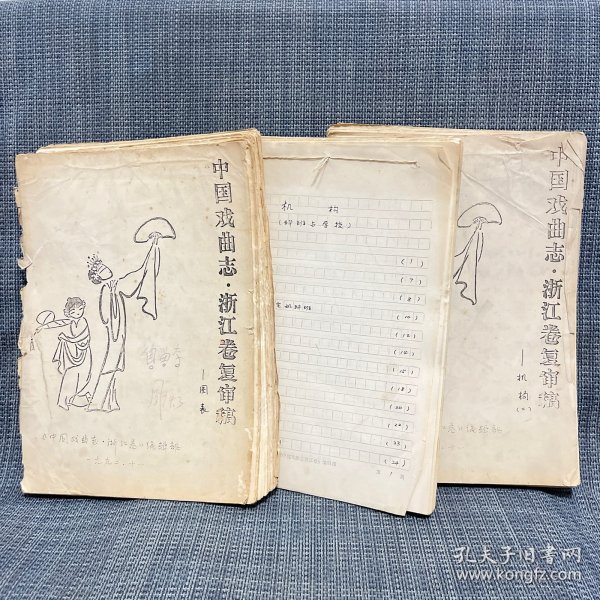 中国戏曲志·浙江卷复审稿
—图表
《中国戏曲志·浙江卷》编辑部
一九九二·十一
机 构
(科班与学校)
(1)
(7)
(8)
(10)
(12)
(18)
(20)
(23)
(24)
第 1 页
中国戏曲志·浙江卷复审稿
—机构(二)
孔夫子旧书网
www.kongfz.com